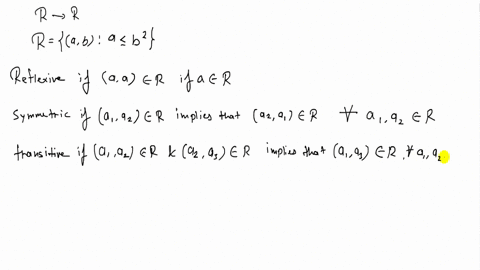 R → R
R = {(a, b) : a ≤ b²}
Reflexive if (a, a) ∈ R if a ∈ R
Symmetric if (a₁, a₂) ∈ R implies that (a₂, a₁) ∈ R ∀ a₁, a₂ ∈ R
transitive if (a₁, a₂) ∈ R & (a₂, a₃) ∈ R implies that (a₁, a₃) ∈ R, ∀ a₁, a₂